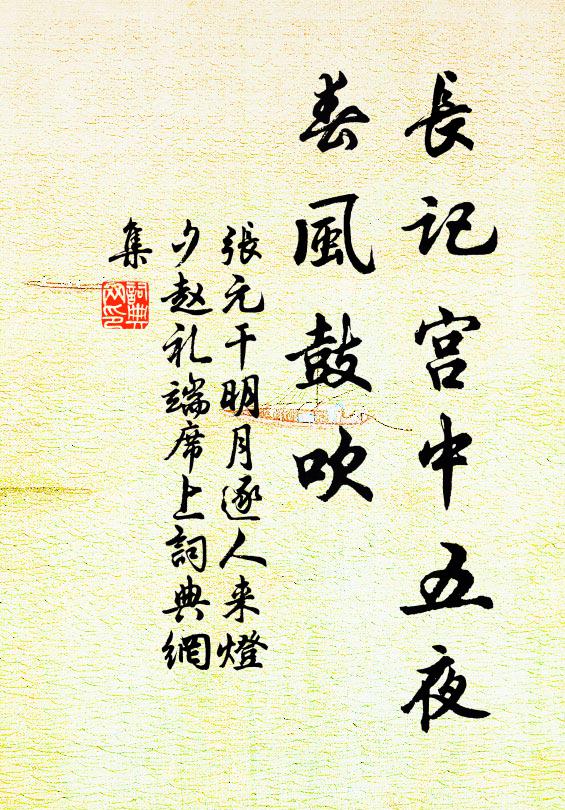 長记宫中五夜
春風鼓吹
張元干明月逐人来燈
夕赵礼端席上詞典網
集
詞典网印